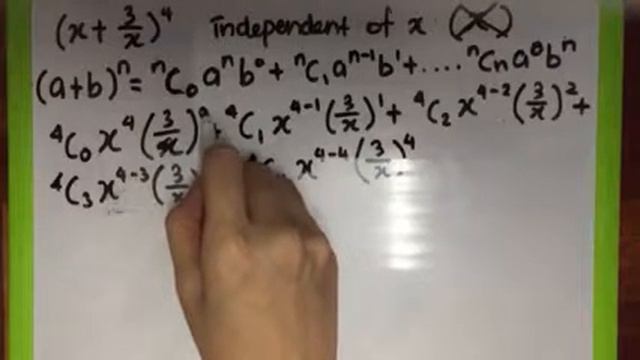 (x + 3/x)⁴ Independent of x (x)
(a+b)ⁿ = ⁿC₀aⁿb⁰ + ⁿC₁aⁿ⁻¹b¹ + .... ⁿCₙa⁰bⁿ
⁴C₀x⁴(3/x)⁰ + ⁴C₁x⁴⁻¹(3/x)¹ + ⁴C₂x⁴⁻²(3/x)² +
⁴C₃x⁴⁻³(3/x) x⁴⁻⁴(3/x)⁴